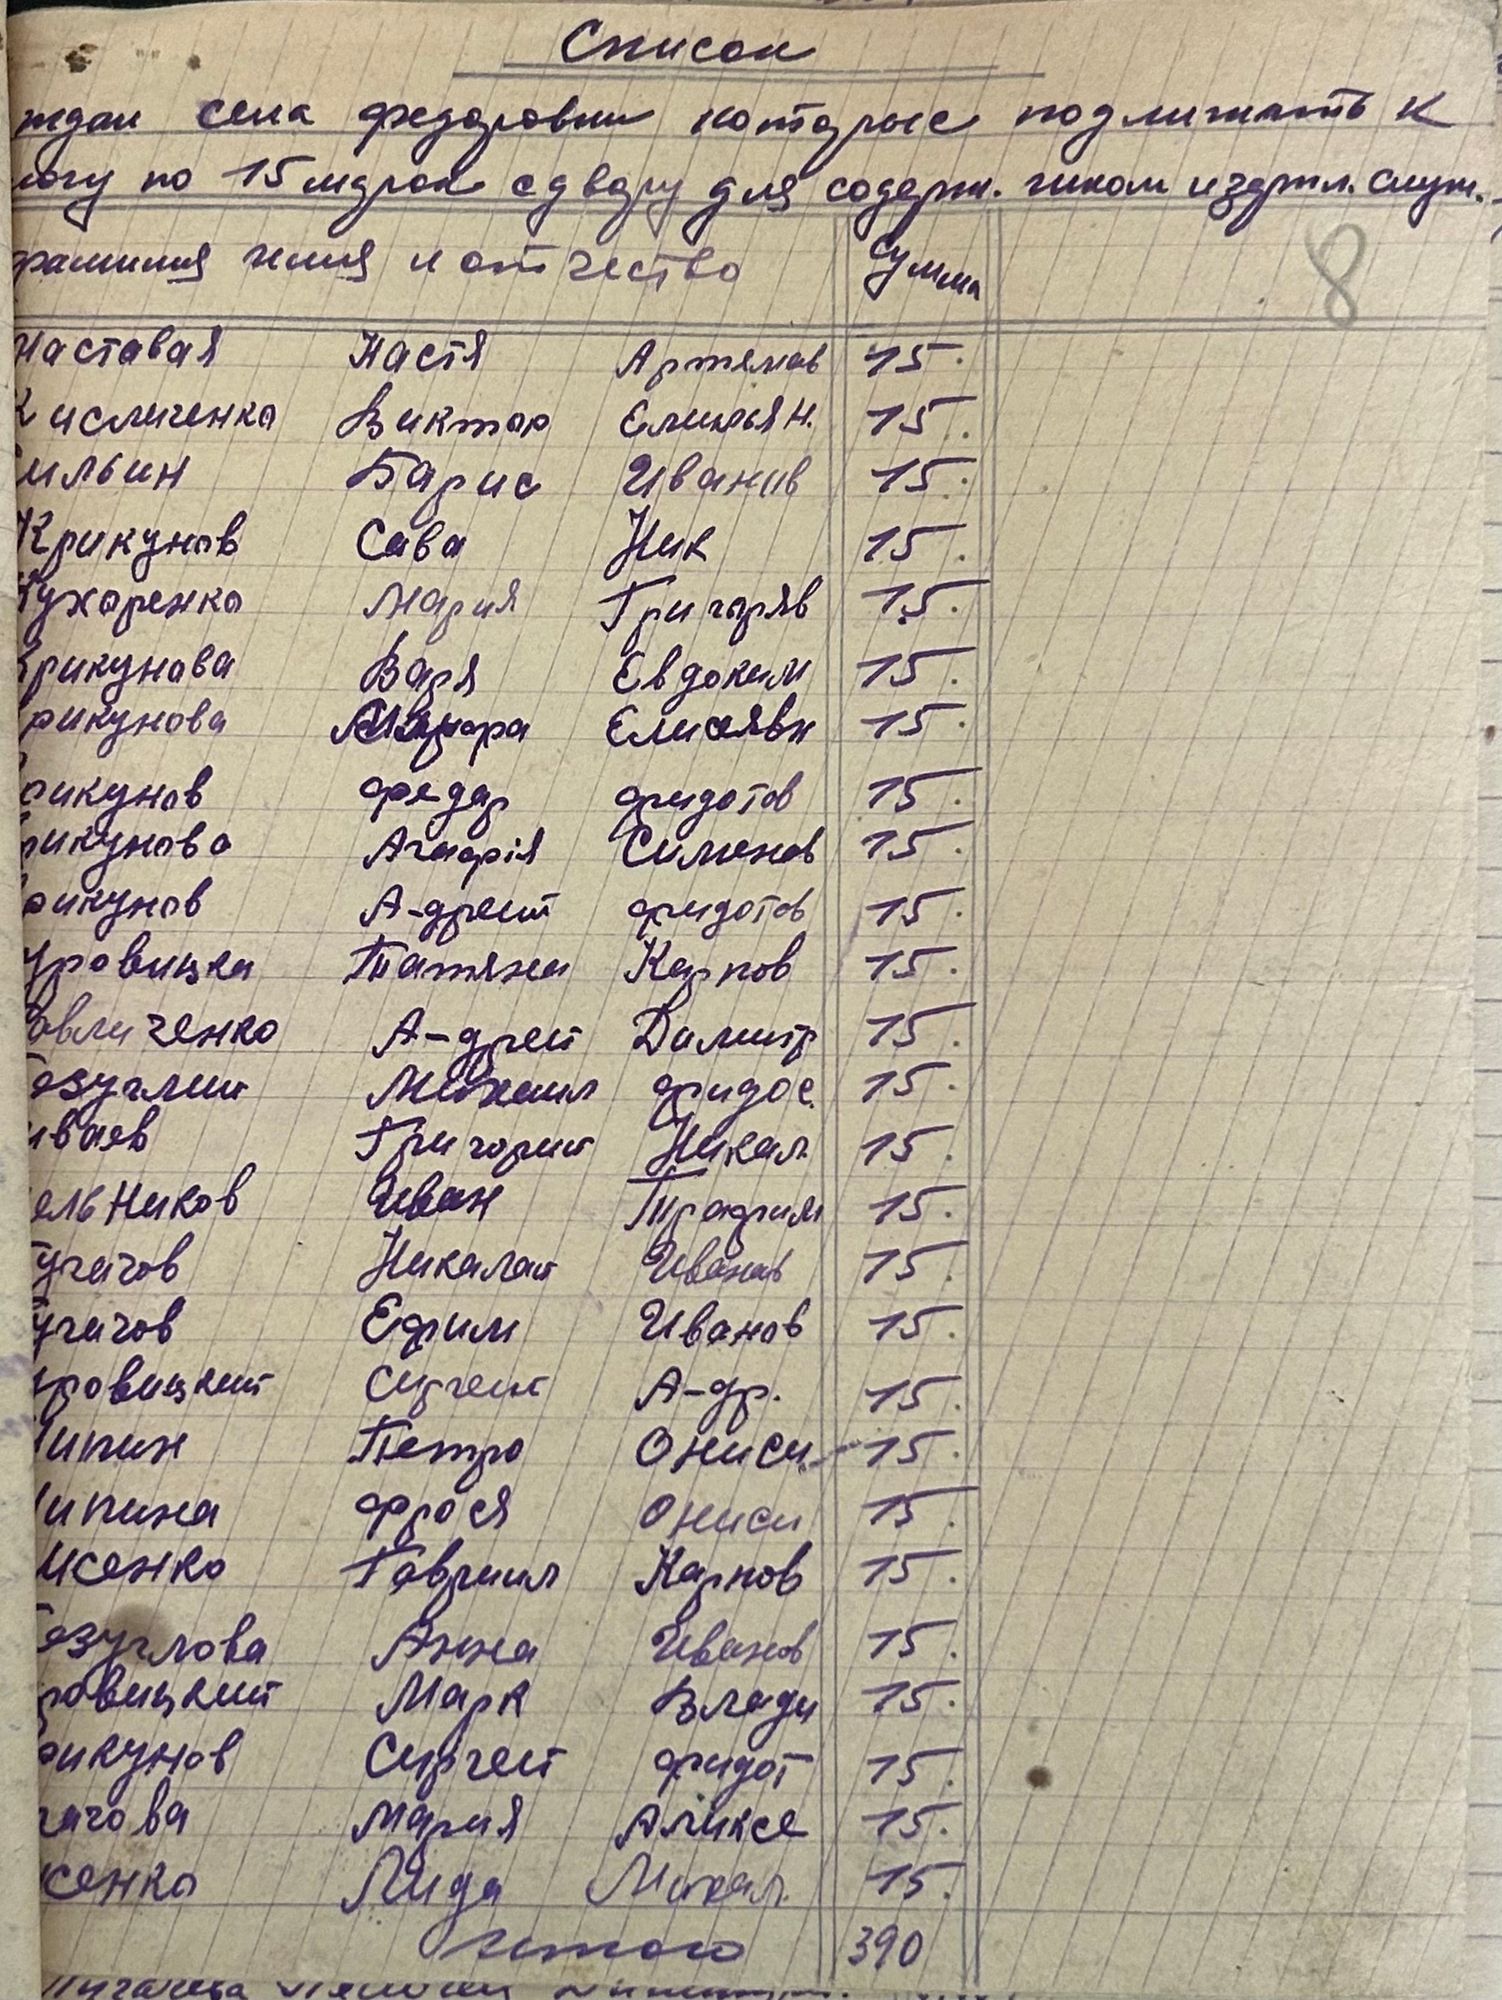 Список
ждан села Федоровки которые подлижать к
логу по 15 марок с двору для содерж. чиком издержл. служ.
фамилия имия и отчество Сумма
8
Наставая Настя Артемов 15.
Кисличенко Виктор Емильян. 15.
ильин Барис Иванив 15.
Крикунов Сава Ник 15.
Кухаренко Мария Григоряв 15.
Крикунава Варя Евдоким 15.
рикунова Елисявн 15.
рикунов Федар Фидотов 15.
рикунова Агафія Симонов 15.
рикунов А-дрей Фидотов 15.
уровицка Татяна Карпов 15.
авличенко А-дрей Димитр 15.
Безуглий Михаил Фидос. 15.
иваев Григорий Никал. 15.
ельников Иван Трафим 15.
угачов Никалай Иванов 15.
угачов Ефим Иванов 15.
уровицкий Сиргей А-др. 15.
Липин Петро Ониси 15.
Липина Фрося Ониси 15.
исенко Гавриил Карпов 15.
Безуглова Анна Иванов 15.
ровицкий Марк Влади 15.
рикунов Сиргей Фидот 15.
гачова Мария Аликсе 15.
сенко Лида Михал. 15.
Итого 390